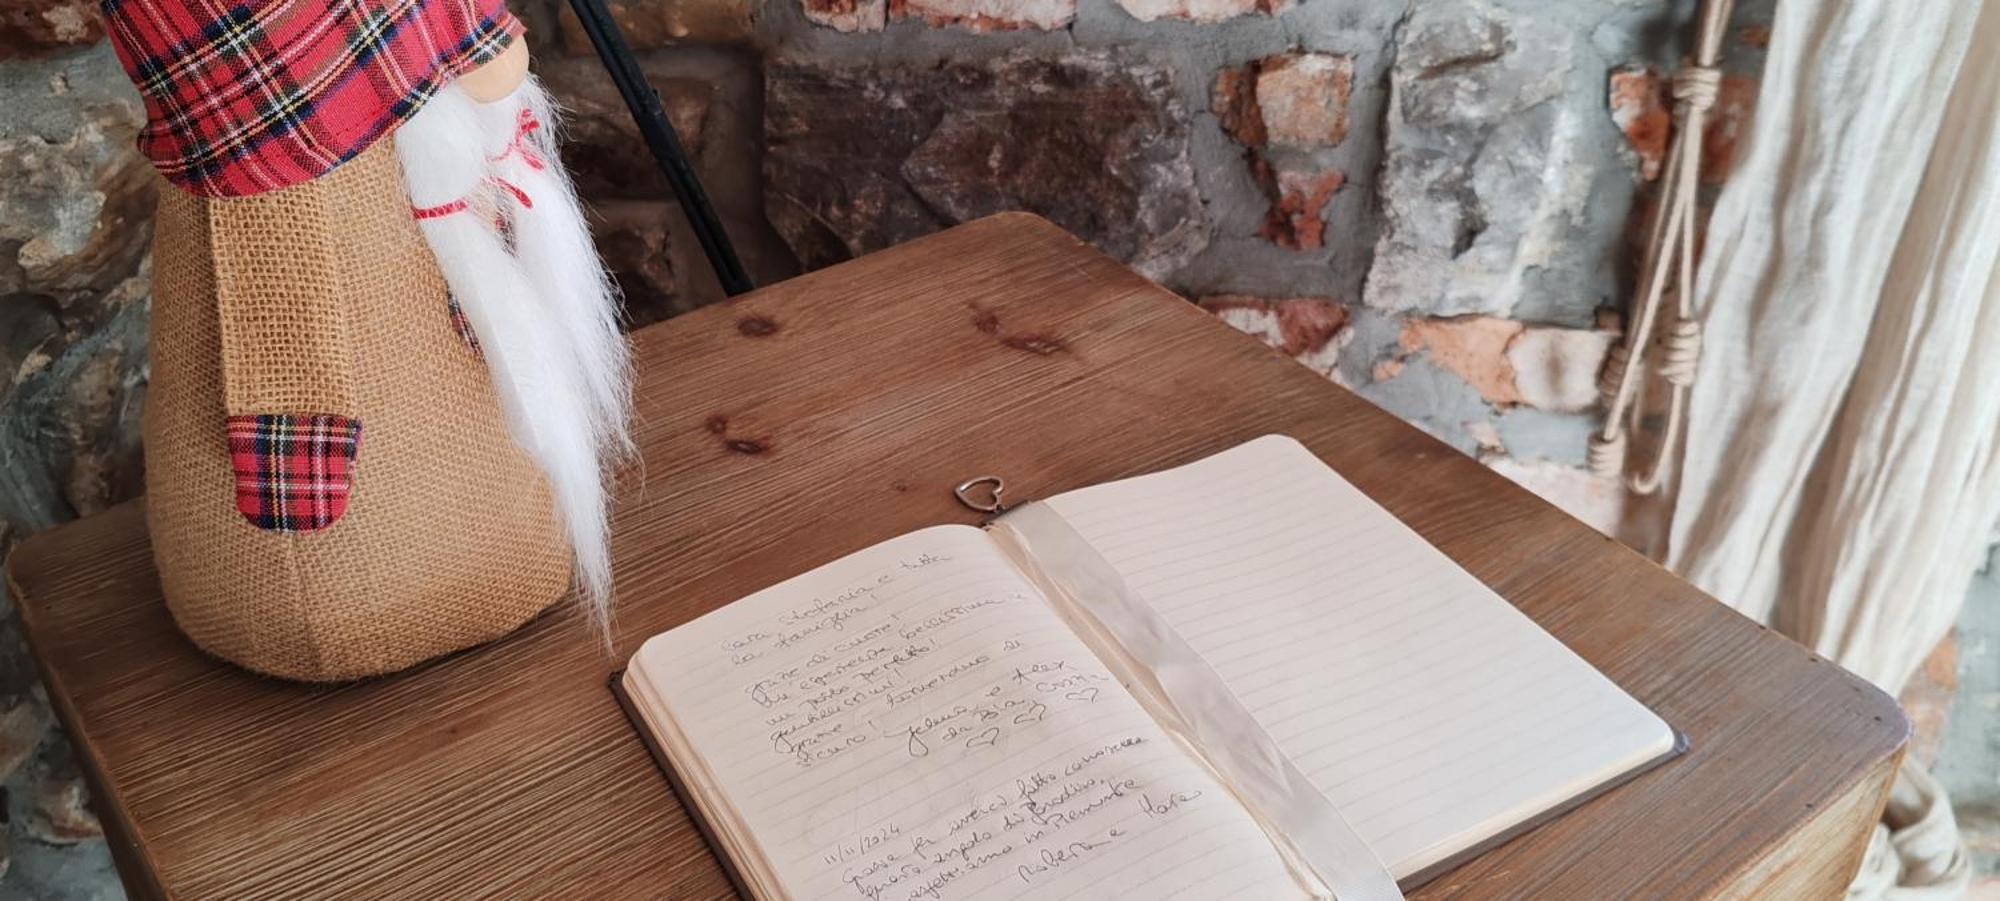 Cara Stefania e tutta
la famiglia!
Grazie di cuore!
Un'esperienza bellissima e
un posto perfetto!
Gentilissimi!
Grazie! Torneremo di
sicuro! Jelena e Alex
da
11/11/2024
Grazie per averci fatto conoscere
questo angolo di Paradiso,
aspettiamo in Piemonte
Roberta e